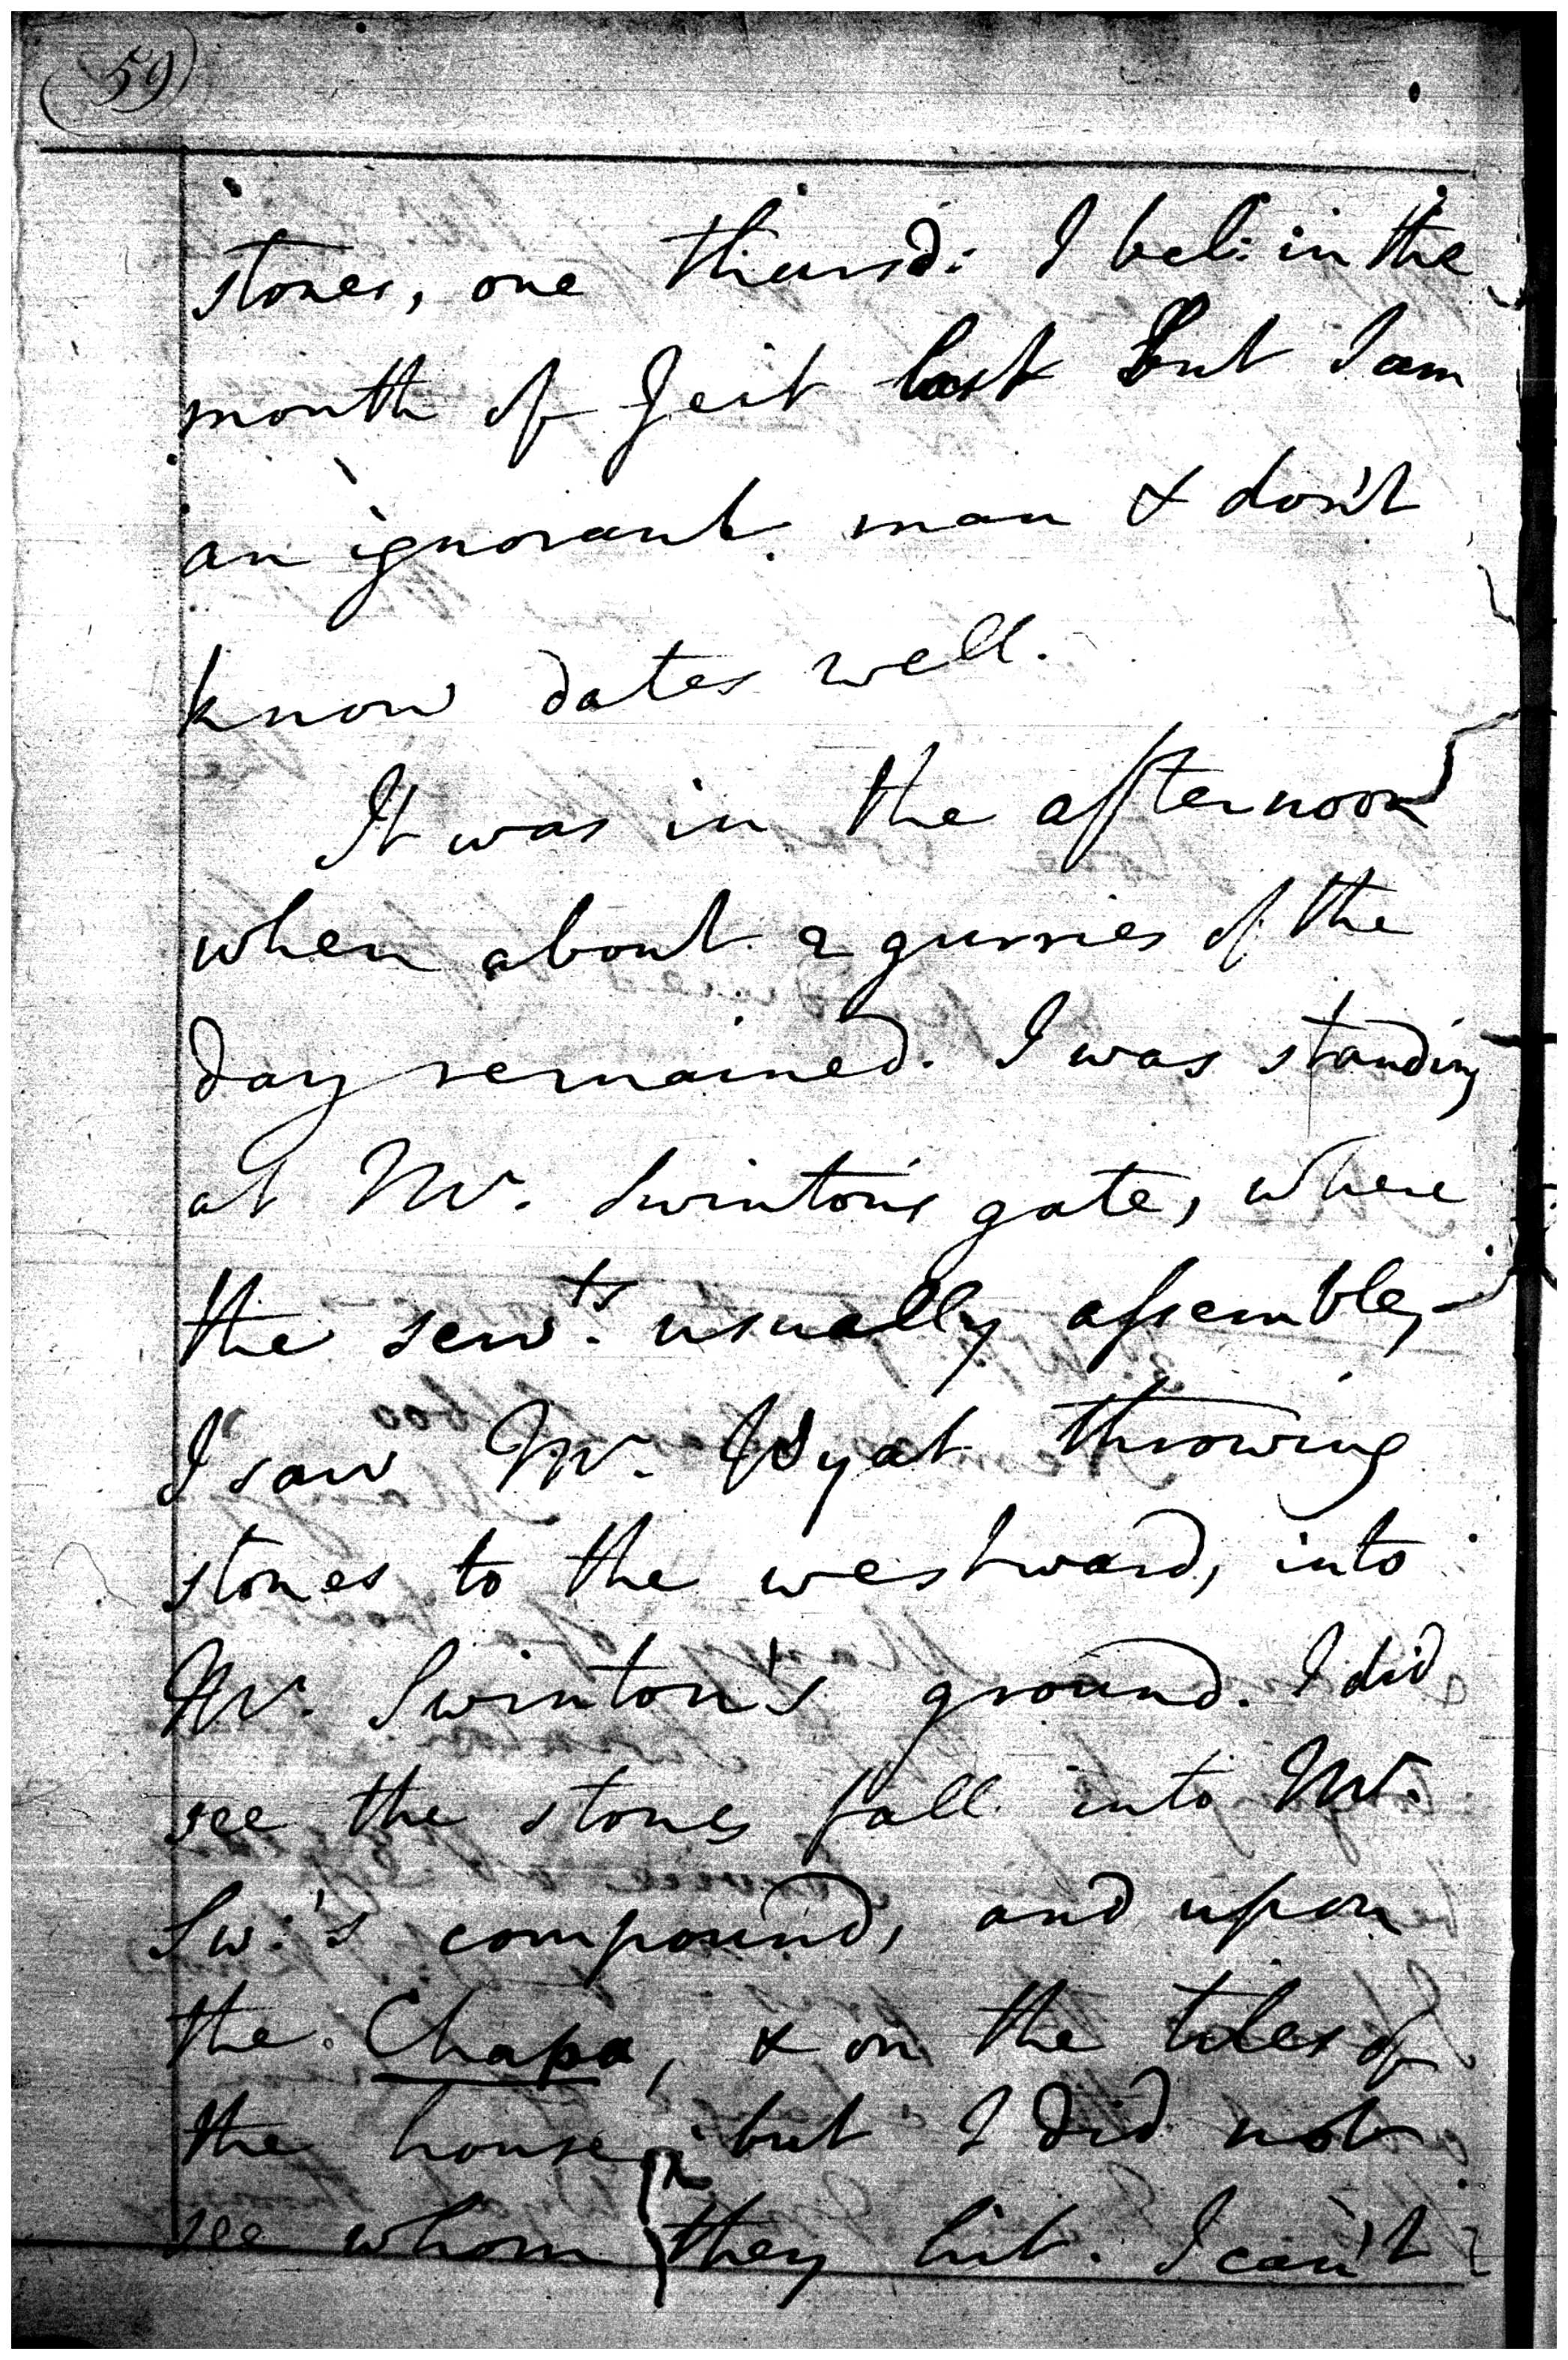 59
stones, one thiursd: I bel: in the
month of Jeit last But I am
an ignorant man & don't
know dates well.
It was in the afternoon
when about 2 gurries of the
day remained. I was standing
at Mr. Swinton's gate, where
the serv.ts usually assemble,
I saw Mr. Wyat throwing
stones to the westward, into
Mr. Swinton's ground. I did
see the stones fall into Mr.
Sw:'s compound, and upon
the Chapa, & on the tiles of
the house, but I did not
see whom they hit. I can't